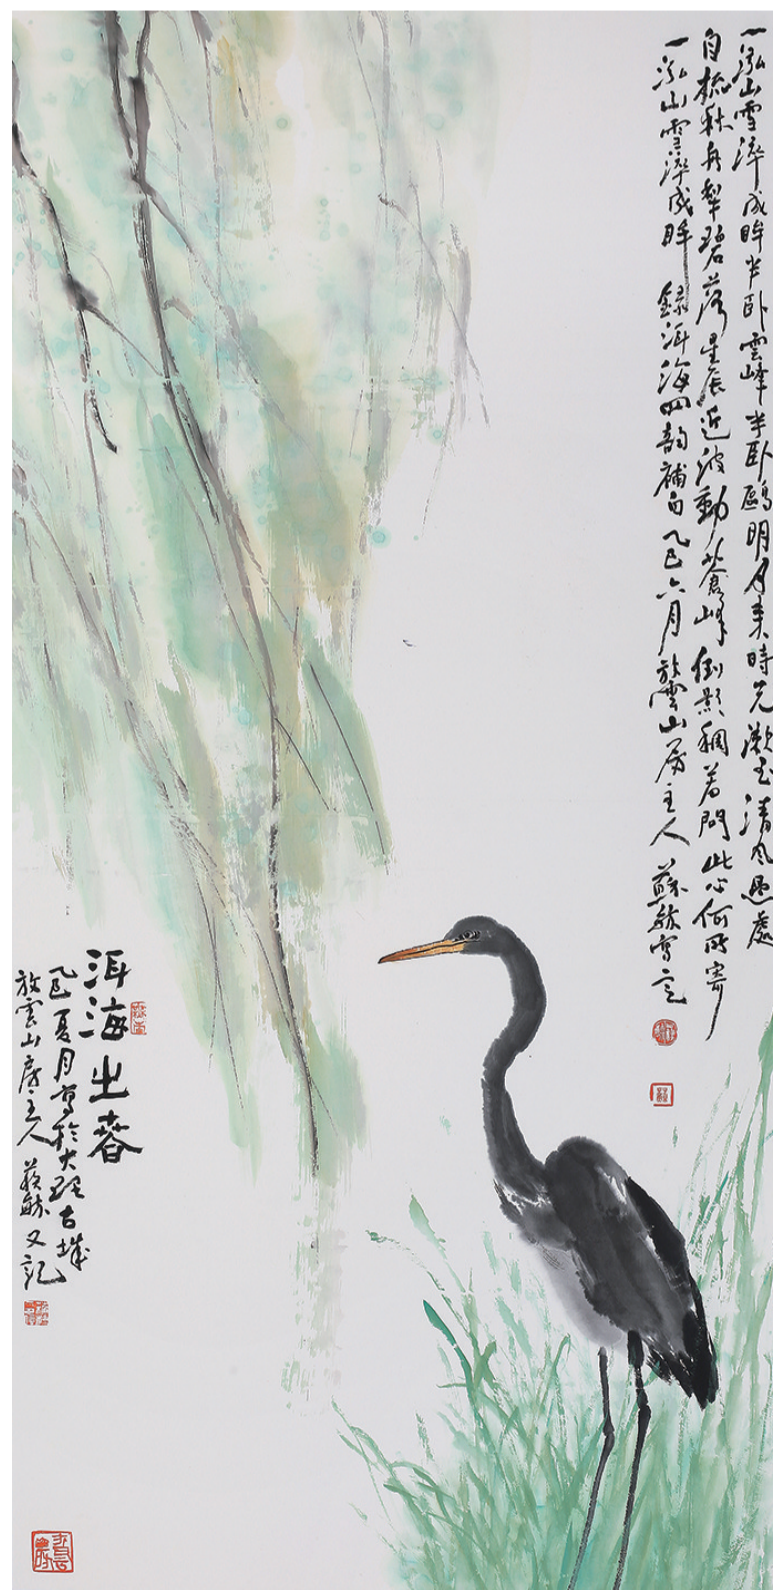 一泓山雪淬成眸半卧雲峰半卧鷗明月来時先漱玉清风過處
自梳秋舟犁碧落星辰近波動蒼峰倒影稠若問此心何所寄
一泓山雪淬成眸 録洱海四韵補白乙巳六月放雲山房主人蘇穌寫
洱海之春
乙巳夏月寫於大理古城
放雲山房主人 蘇穌又記